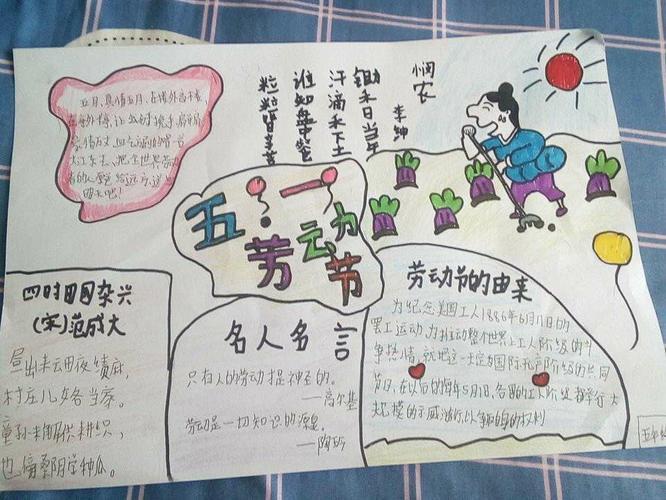 悯农
李绅
锄禾日当午
汗滴禾下土
谁知盘中餐
粒粒皆辛苦
五·一
劳动节
四时田园杂兴
(宋)范成大
昼出耘田夜绩麻,
村庄儿女各当家。
童孙未解供耕织,
也傍桑阴学种瓜。
名人名言
只有人的劳动才是神圣的。
——高尔基
劳动是一切知识的源泉。
——陶铸
劳动节的由来
为纪念美国工人1886年
罢工运动,为推动整个世界上工人阶级的斗
争热情,就把这一天定为国际无产阶级的共同
节日,在以后的每年5月1日,各国的工人阶级都举行大
规模的示威游行,以争取自己的权利